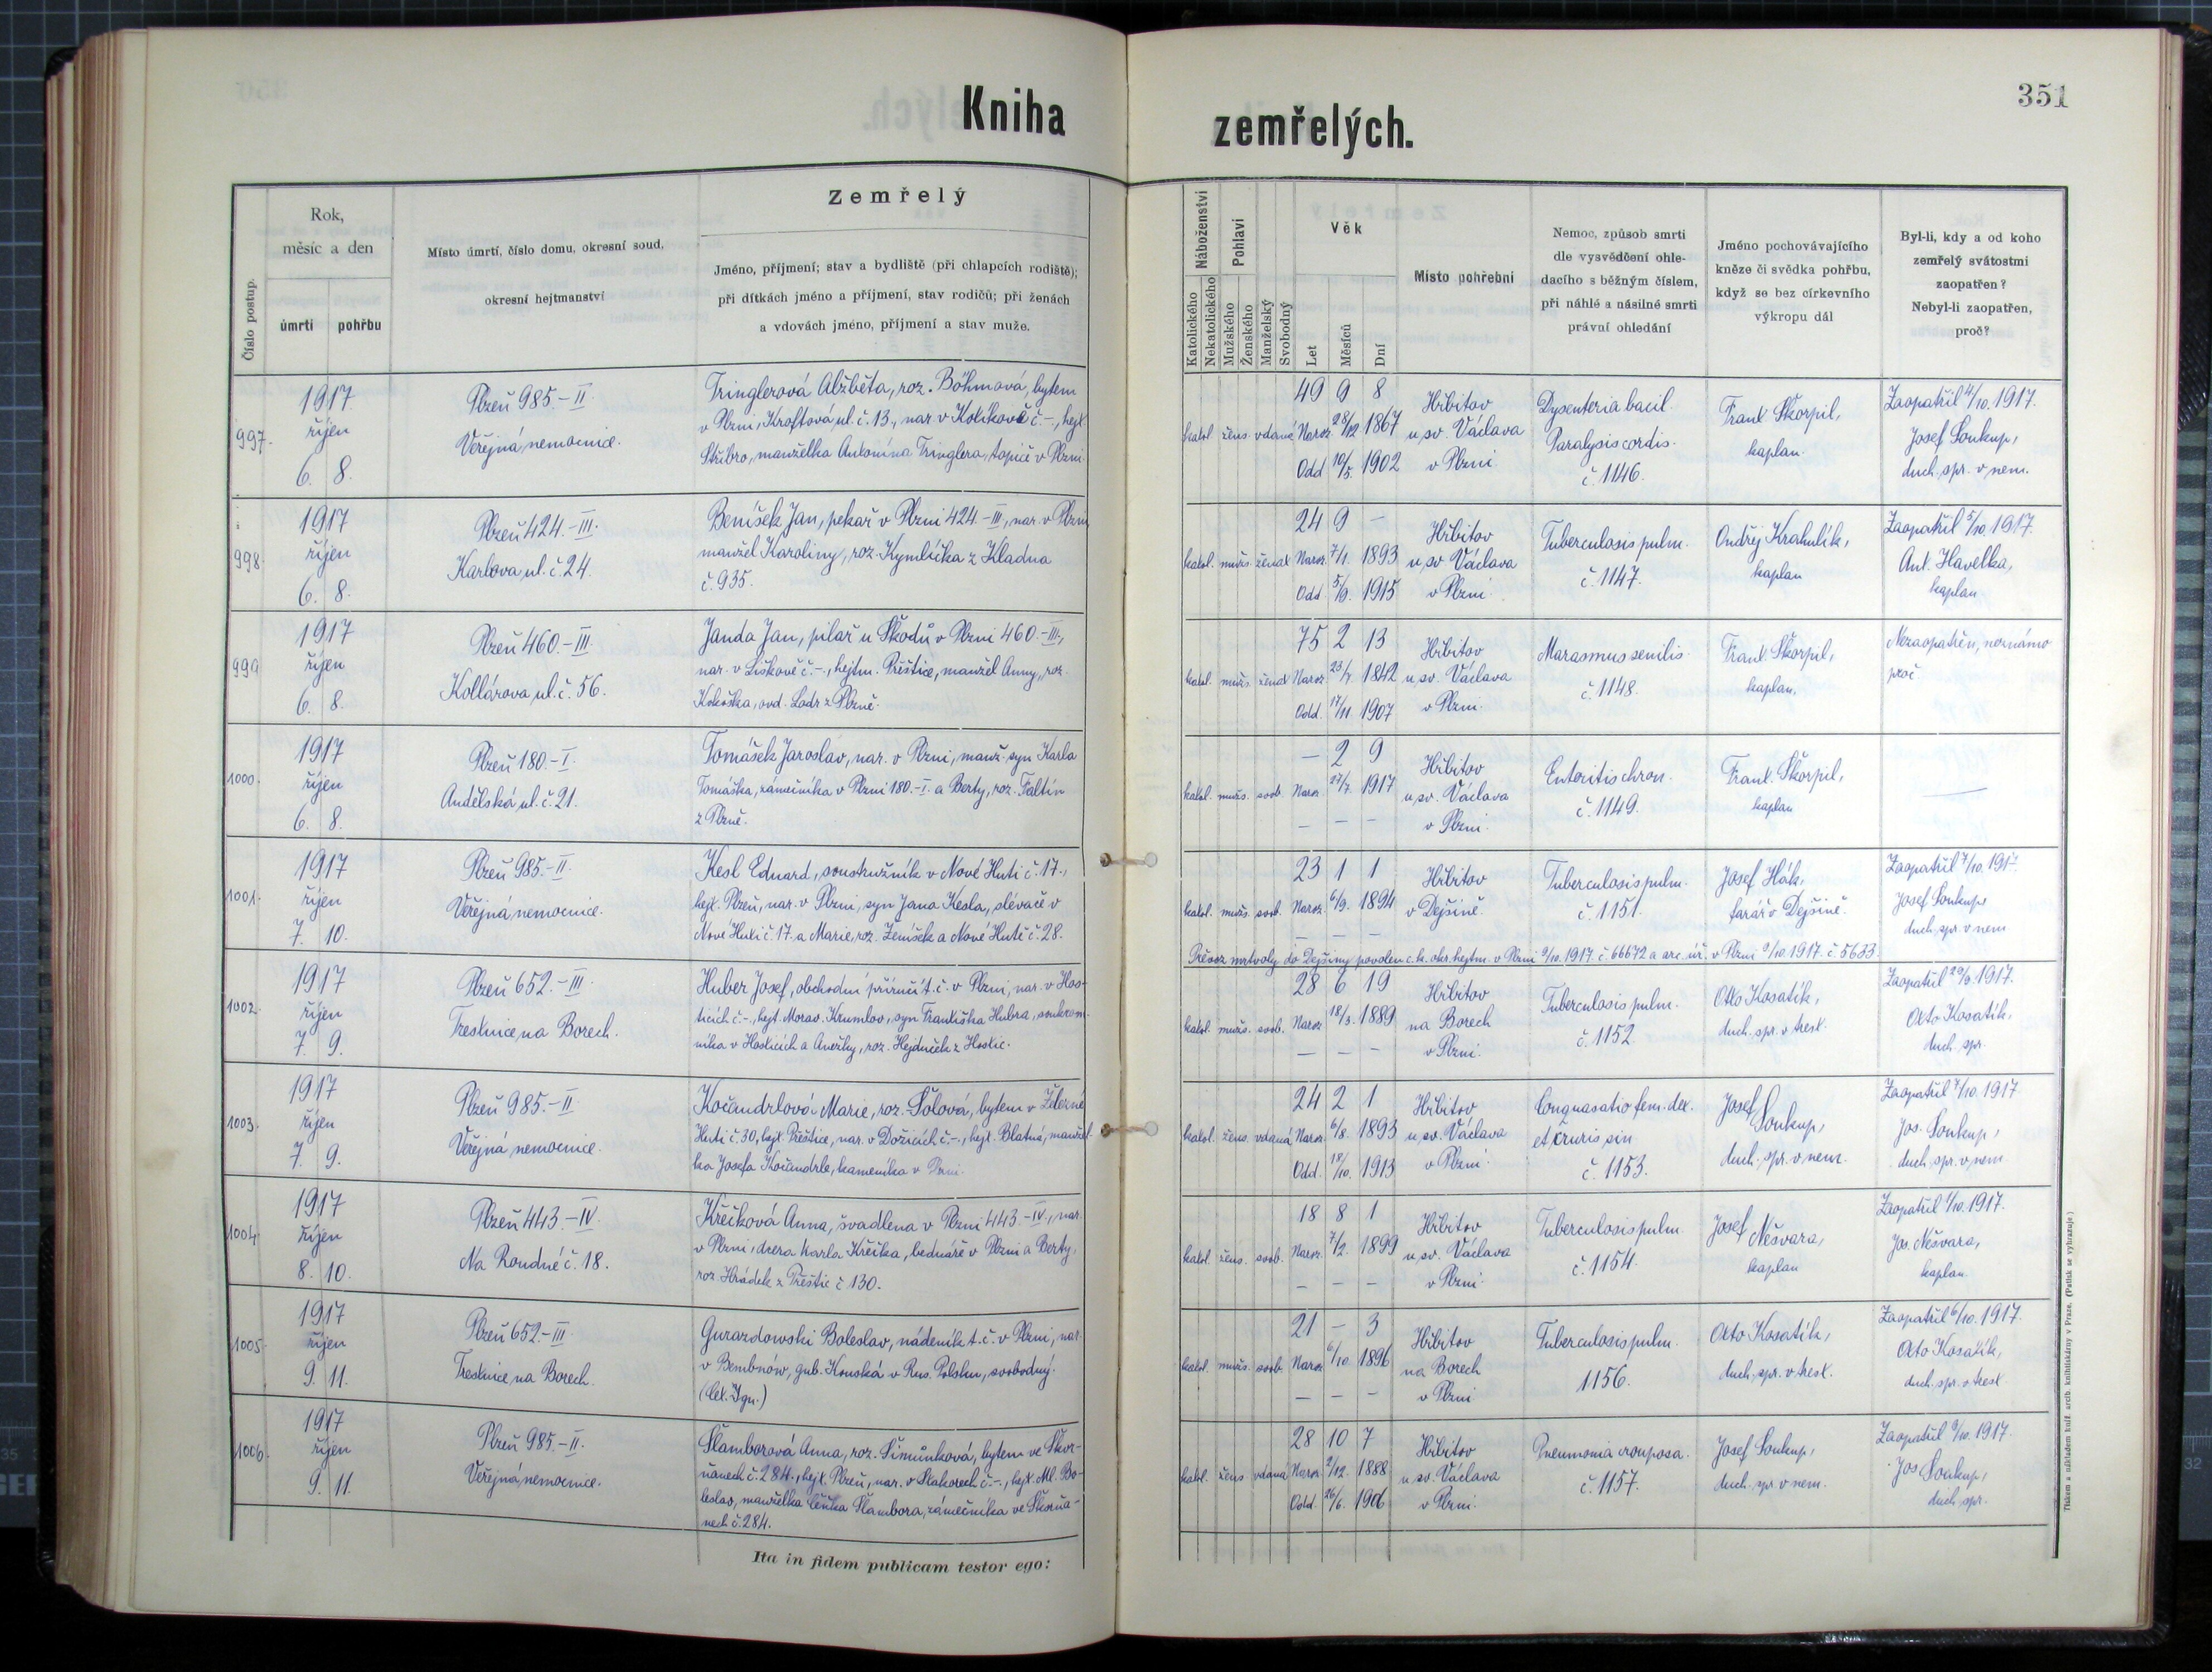 Kniha
zemřelých.
351
Číslo postup.
Rok,
měsíc a den
úmrtí
pohřbu
Místo úmrtí, číslo domu, okresní soud,
okresní hejtmanství
Zemřelý
Jméno, příjmení; stav a bydliště (při chlapcích rodiště);
při dítkách jméno a příjmení, stav rodičů; při ženách
a vdovách jméno, příjmení a stav muže.
Náboženství
Katolického
Nekatolického
Pohlaví
Mužského
Ženského
Manželský
Svobodný
Věk
Let
Měsíců
Dní
Místo pohřební
Nemoc, způsob smrti
dle vysvědčení ohle-
dacího s běžným číslem,
při náhlé a násilné smrti
právní ohledání
Jméno pochovávajícího
kněze či svědka pohřbu,
když se bez církevního
výkropu dál
Byl-li, kdy a od koho
zemřelý svátostmi
zaopatřen?
Nebyl-li zaopatřen,
proč?
997.
1917
říjen
6. 8.
Plzeň 985.-II
Veřejná nemocnice.
Tringlerová Alžběta, roz. Böhmová, bytem
v Plzni, Kroftova ul. č. 13., nar. v Kokíkově č.-, hejt.
Stříbro, manželka Antonína Tringlera, topiče v Plzni.
katol. žens. vdaná
49 9 8
Naroz. 28/12 1867
Odd 10/5. 1902
Hřbitov
u sv. Václava
v Plzni
Dysenteria bacil.
Paralysis cordis.
č. 1146.
Frant. Škorpil,
kaplan.
Zaopatřil 4/10. 1917.
Josef Soukup,
duch. spr. v nem.
998.
1917
říjen
6. 8.
Plzeň 424.-III.
Karlova ul. č. 24.
Beníšek Jan, pekař v Plzni 424.-III, nar. v Plzni
manžel Karoliny, roz. Kymlička z Kladna
č. 935.
katol. mužs. ženat
24 9 -
Naroz. 7/1. 1893
Odd. 5/9. 1915
Hřbitov
u sv. Václava
v Plzni.
Tuberculosis pulm.
č. 1147.
Ondřej Krahulík,
kaplan
Zaopatřil 5/10. 1917.
Ant. Havelka,
kaplan
999
1917
říjen
6. 8.
Plzeň 460.-III.
Kollárova ul. č. 56.
Janda Jan, pilař u Škodů v Plzni 460.-III.,
nar. v Liškově č.-, hejtm. Přeštice, manžel Anny, roz.
Kokoška, ovd. Ladr z Plzně.
katol. mužs. ženat
75 2 13
Naroz. 23/7. 1842
Odd. 17/11 1907
Hřbitov
u sv. Václava
v Plzni.
Marasmus senilis.
č. 1148.
Frant. Škorpil,
kaplan.
Nezaopatřen, neznámo
proč
1000.
1917
říjen
6. 8.
Plzeň 180.-I.
Andělská ul. č. 21.
Tomášek Jaroslav, nar. v Plzni, manž. syn Karla
Tomáška, zámečníka v Plzni 180.-I. a Berty, roz. Faltín
z Plzně.
katol. mužs. svob.
- 2 9
Naroz. 27/7. 1917
- - -
Hřbitov
u sv. Václava
v Plzni.
Enteritis chron.
č. 1149.
Frant. Škorpil,
kaplan
1001.
1917
říjen
7. 10.
Plzeň 985.-II
Veřejná nemocnice.
Kesl Eduard, soustružník v Nové Huti č. 17.,
hejt. Plzeň, nar. v Plzni, syn Jana Kesla, slévače v
Nové Huti č. 17. a Marie, roz. Zeníšek z Nové Hutě č. 28.
katol. mužs. svob.
23 1 1
Naroz. 6/9. 1894
- - -
Hřbitov
v Dejšině.
Tuberculosis pulm.
č. 1151.
Josef Hák,
farář v Dejšině.
Zaopatřil 7/10. 1917
Josef Soukup,
duch. spr. v nem
Převoz mrtvoly do Dejšiny povolen c. k. okr. hejtm. v Plzni 9/10. 1917. č. 66672 a arc. úř. v Plzni 9/10. 1917. č. 5633.
1002.
1917
říjen
7. 9.
Plzeň 652.-III
Trestnice na Borech.
Huber Josef, obchodní příručí t. č. v Plzni, nar. v Hos-
ticích č.-, hejt. Morav. Krumlov, syn Františka Hubra, soukrom-
níka v Hosticích a Anežky, roz. Hejduček z Hostic.
katol. mužs. svob.
28 6 19
Naroz. 18/3. 1889
- - -
Hřbitov
na Borech
v Plzni.
Tuberculosis pulm.
č. 1152.
Otto Kosatík,
duch. spr. v trest.
Zaopatřil 29/9. 1917.
Otto Kosatík,
duch. spr.
1003.
1917
říjen
7. 9.
Plzeň 985.-II
Veřejná nemocnice.
Kočandrlová Marie, roz. Šolová, bytem v Železné
Huti č. 30, hejt. Přeštice, nar. v Dožicích č.-., hejt. Blatná, manžel-
ka Josefa Kočandrle, kameníka v Plzni.
katol. žens. vdaná
24 2 1
Naroz. 6/8. 1893
Odd. 18/10. 1913
Hřbitov
u sv. Václava
v Plzni.
Conquasatio fem. dex.
et cruris sin
č. 1153.
Josef
Soukup,
duch. spr. v nem.
Zaopatřil 7/10. 1917
Jos. Soukup,
duch. spr. v nem
1004.
1917
říjen
8. 10.
Plzeň 443.-IV.
Na Roudné č. 18.
Křečková Anna, švadlena v Plzni 443.-IV., nar.
v Plzni, dcera Karla Křečka, bednáře v Plzni a Berty,
roz. Hrádek z Přeštic č. 130.
katol. žens. svob.
18 8 1
Naroz. 7/2. 1899
- - -
Hřbitov
u sv. Václava
v Plzni.
Tuberculosis pulm.
č. 1154.
Josef
Nešvara,
kaplan
Zaopatřil 1/10. 1917.
Jos. Nešvara,
kaplan.
1005.
1917
říjen
9. 11.
Plzeň 652.-III
Trestnice na Borech.
Gurazdowski Boleslav, nádeník t. č. v Plzni, nar.
v Bembnów, gub. Konská v Rus. Polsku, svobodný.
katol. mužs. svob.
21 - 3
Naroz. 6/10. 1896
- - -
Hřbitov
na Borech
v Plzni
Tuberculosis pulm.
1156.
Otto Kosatík,
duch. spr. v trest.
Zaopatřil 6/10. 1917.
Otto Kosatík,
duch. spr. v trest
1006.
1917
říjen
9. 11.
Plzeň 985.-II.
Veřejná nemocnice.
Šlamborová Anna, roz. Šimůnková, bytem ve Škvr-
ňanech č. 284., hejt. Plzeň, nar. v Ptakorech č.-., hejt. Ml. Bo-
leslav, manželka Čeňka Šlambora, zámečníka ve Škvrňa-
nech č. 284.
katol. žens vdaná
28 10 7
Naroz. 2/12. 1888
Odd. 26/6. 1906
Hřbitov
u sv. Václava
v Plzni.
Pneumonia crouposa.
č. 1157.
Josef Soukup,
duch. spr. v nem.
Zaopatřil 9/10. 1917.
Jos. Soukup,
duch. spr.
Ita in fidem publicam testor ego:
Tiskem a nákladem kníž. arcib. knihtiskárny v Praze. (Patisk se vyhrazuje.)